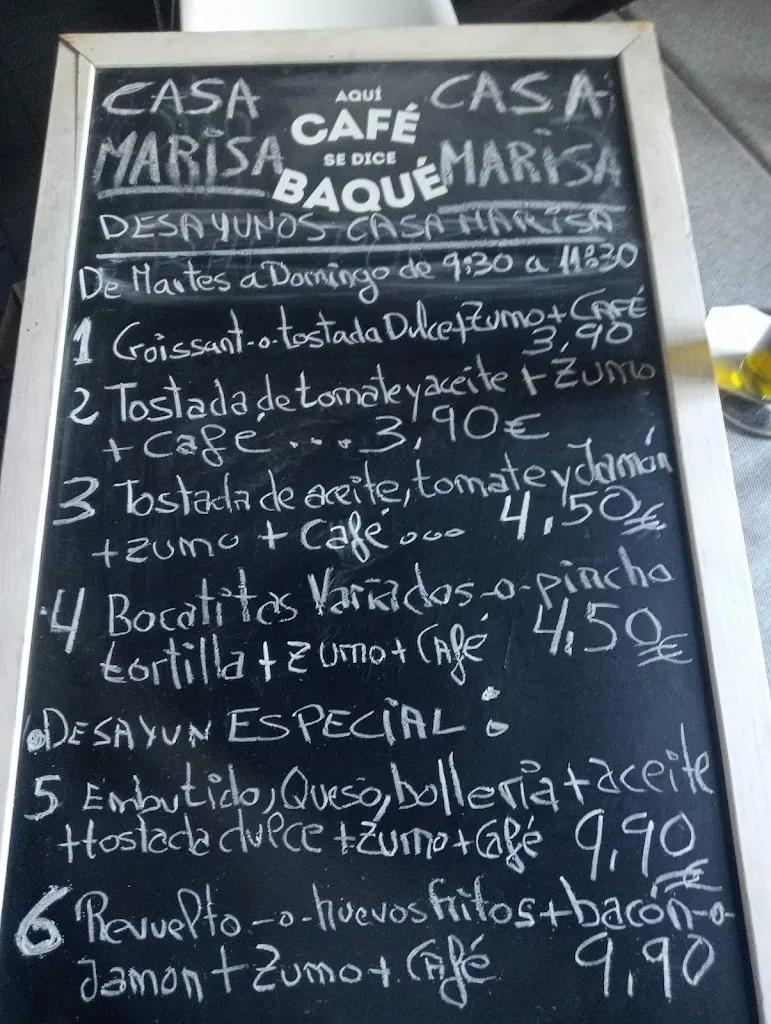 CASA
MARISA
AQUÍ
CAFÉ
SE DICE
BAQUÉ
CASA
MARISA
DESAYUNOS CASA MARISA
De Martes a Domingo de 9:30 a 11:30
1 Croissant-o-tostada Dulce+Zumo+CAFÉ
3,90
2 Tostada de tomate y aceite + Zumo
+ Café .... 3,90€
3 Tostada de aceite, tomate y Jamón
+ zumo + Café ... 4,50€
4 Bocatitos Variados-o-pincho
tortilla + Zumo + Café 4,50€
DESAYUN ESPECIAL:
5 Embutido, Queso, bolleria + aceite
+tostada dulce + Zumo + Café 9,90€
6 Revuelto-o-huevos fritos + bacón-o-
Jamon + Zumo + Café 9,90